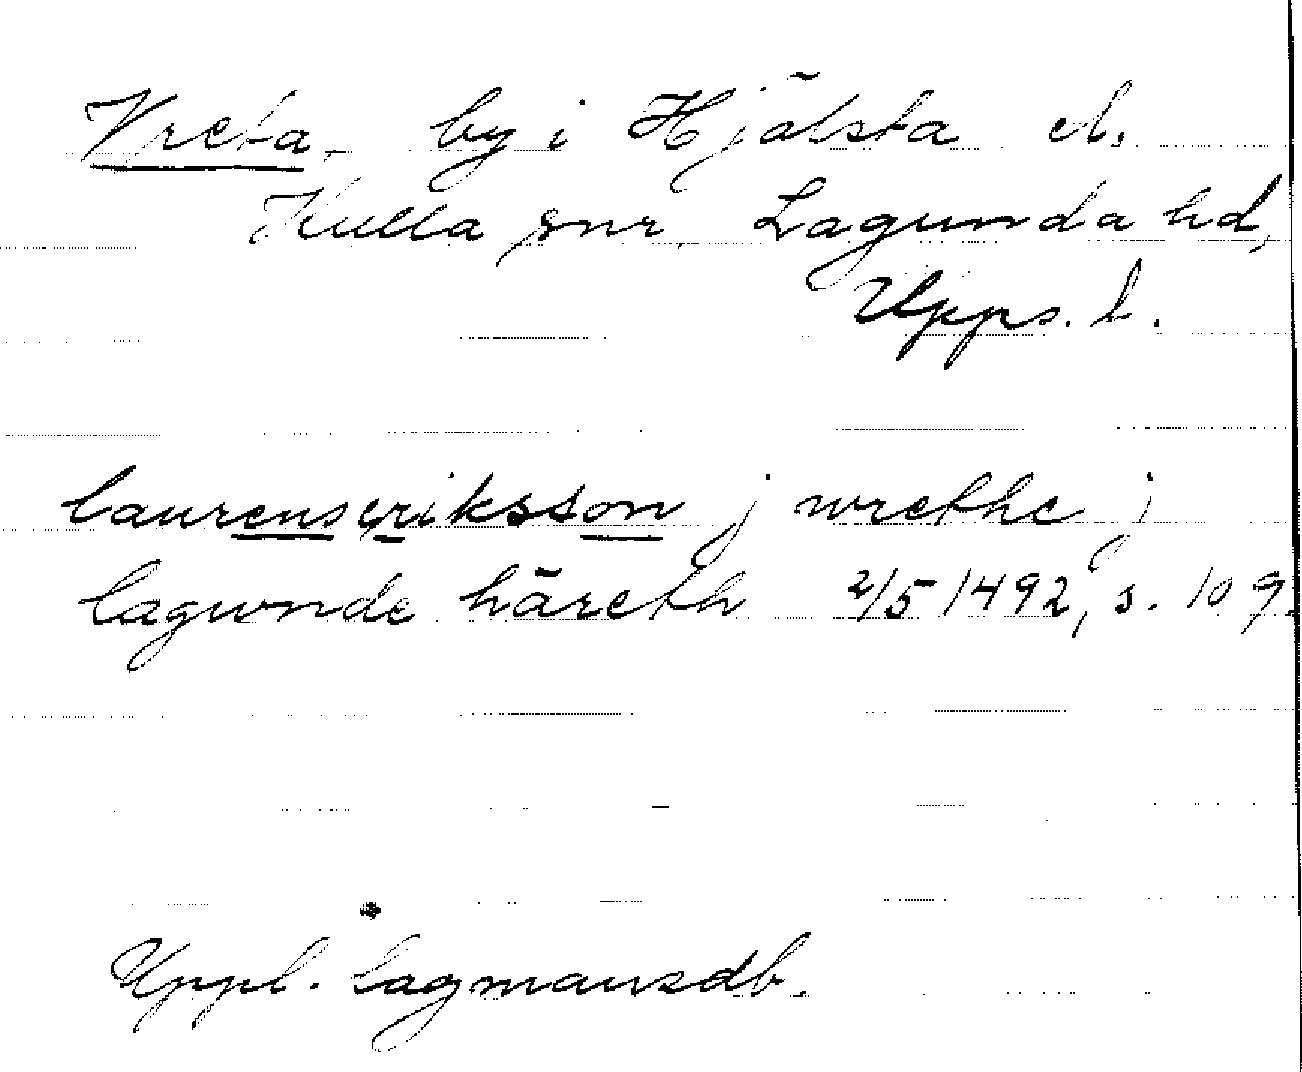 Vreta, by i Hjälsta el.
Kulla snr, Lagunda hd,
Upps. l.
laurens eriksson j wrethe j
lagwnde häreth 2/5 1492, s. 109.
Uppl. lagmansdb.